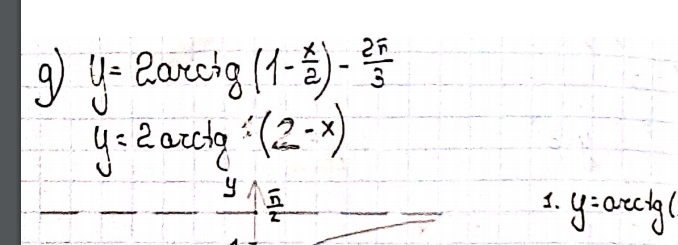 g) y = 2arctg (1 - x/2) - 2π/3
y = 2arctg (2 - x)
y π/2
1. y = arctg(